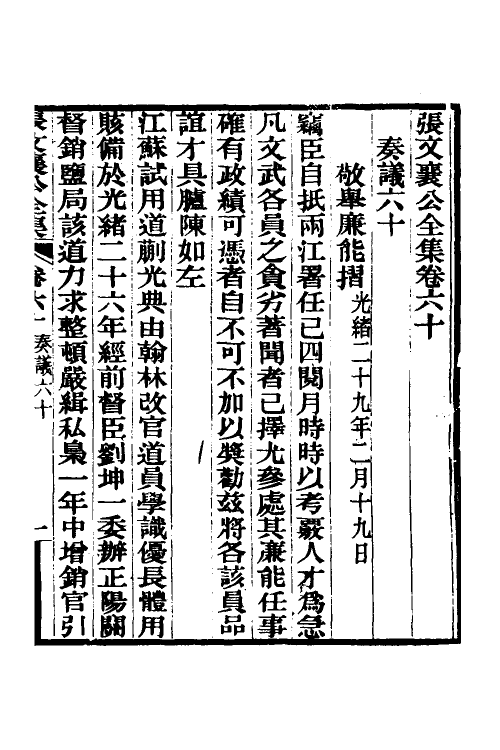 張文襄公全集卷六十
奏議六十
敬舉廉能摺光緒二十九年二月十九日
竊臣自抵兩江署任已四閱月時時以考覈人才爲急
凡文武各員之貪劣著聞者已擇尤參處其廉能任事
確有政績可憑者自不可不加以奬勸茲將各該員品
誼才具臚陳如左
江蘇試用道蒯光典由翰林改官道員學識優長體用
賅備於光緒二十六年經前督臣劉坤一委辦正陽關
督銷鹽局該道力求整頓嚴緝私梟一年中增銷官引
張文襄公全集 卷六十 奏議六十 一